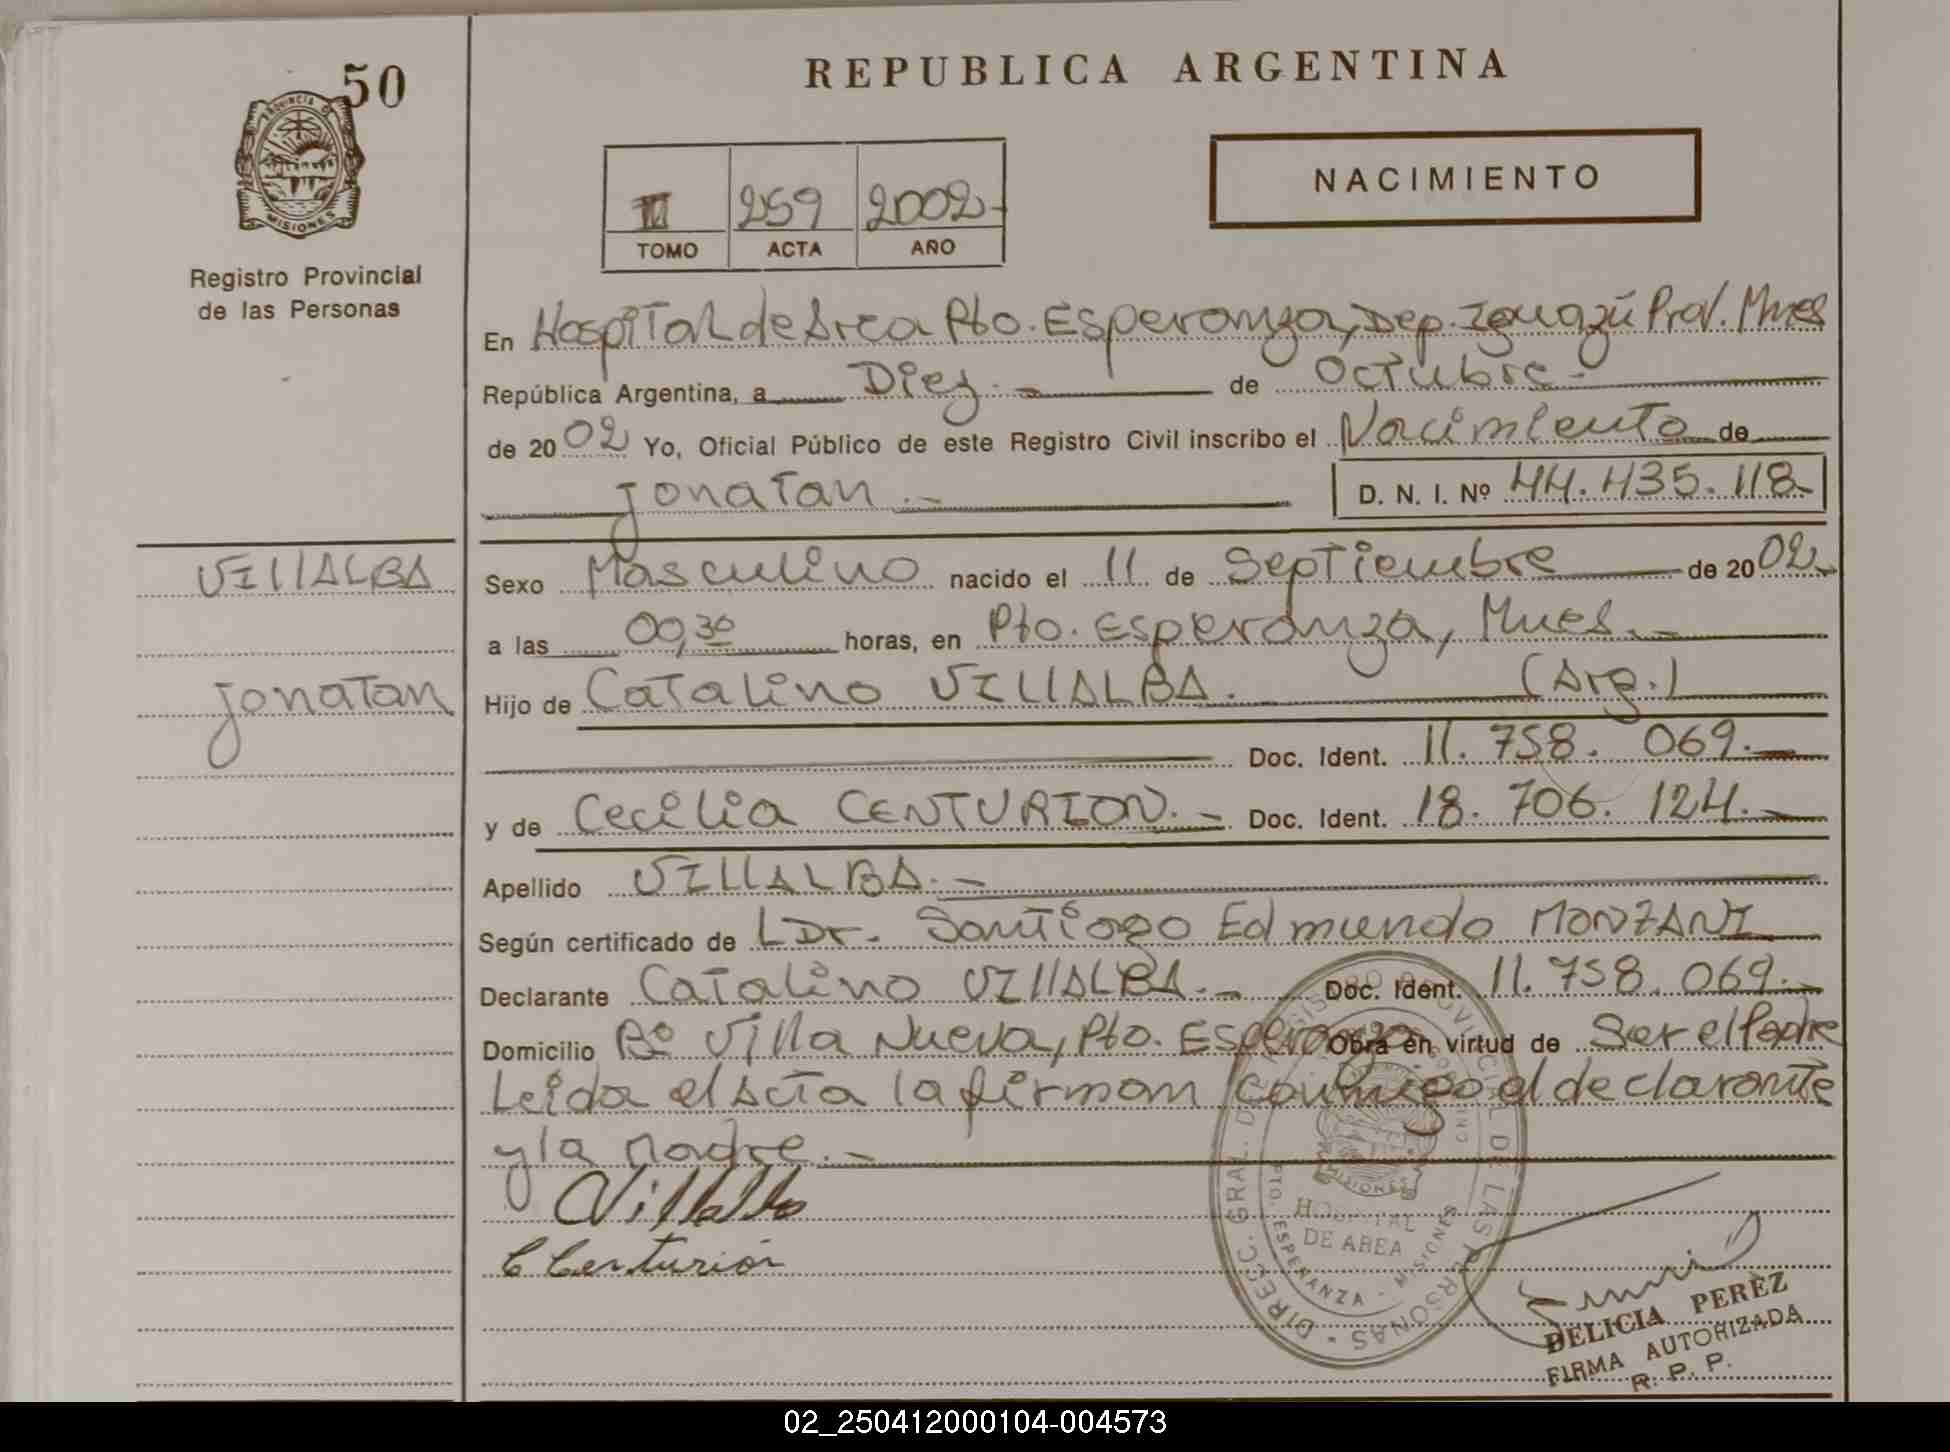 50
PROVINCIA DE
MISIONES
Registro Provincial
de las Personas
REPUBLICA ARGENTINA
NACIMIENTO
259 2002-
TOMO ACTA AÑO
En Hospital de Area Pto. Esperanza, Dep. Iguazú Prov. Mnes
República Argentina, a Diez.- de Octubre.-
de 2002 Yo, Oficial Público de este Registro Civil inscribo el Nacimiento de
Jonatan.- D. N. I. Nº 44.435.118-
VILLALBA
Jonatan
Sexo Masculino nacido el 11 de Septiembre de 2002-
a las 00,30 horas, en Pto. Esperanza, Mnes.-
Hijo de Catalino VILLALBA. (Arg.)
Doc. Ident. 11. 758. 069.-
y de Cecilia CENTURION.- Doc. Ident. 18. 706. 124.-
Apellido VILLALBA.-
Según certificado de Dr. Santiago Edmundo MONZANI
Declarante Catalino VILLALBA.- Doc. Ident. 11.758.069.-
Domicilio Bº Villa Nueva, Pto. Esperanza Obra en virtud de Ser el Padre
Leida el Acta la firman conmigo el declarante
y la Madre.-
Villalba
C Centurión
DIRECC. GRAL. DEL REGISTRO PROVINCIAL DE LAS PERSONAS
MISIONES
HOSPITAL
DE AREA
PTO. ESPERANZA - MISIONES
DELICIA PEREZ
FIRMA AUTORIZADA
R. P. P.
02_250412000104-004573